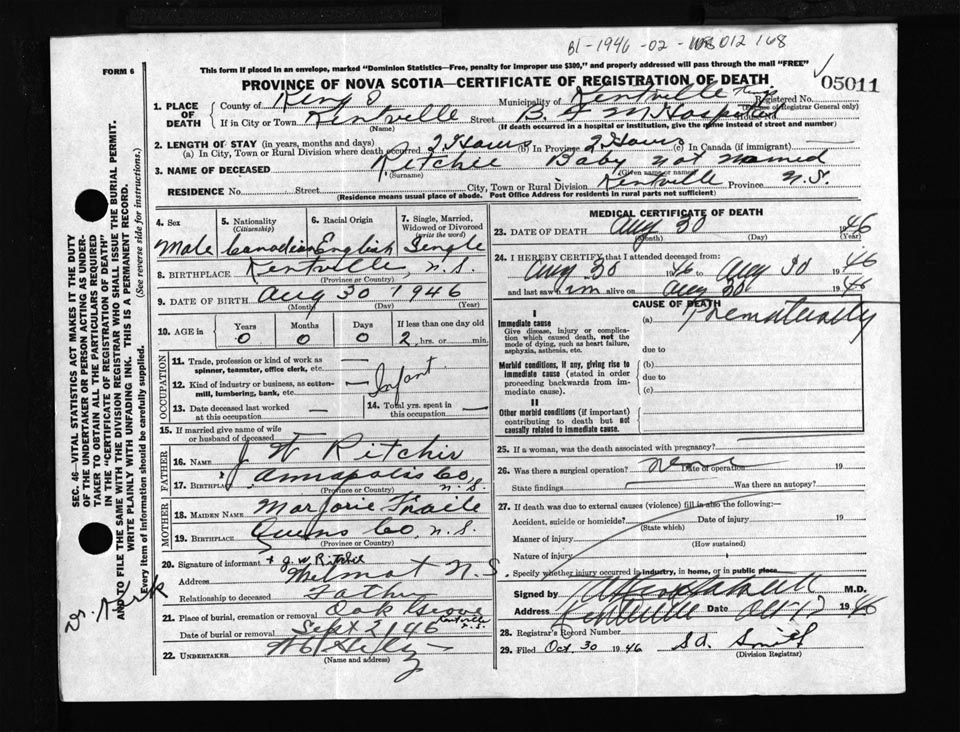 B1-1946-02-012168
FORM 6
This form if placed in an envelope, marked "Dominion Statistics—Free, penalty for improper use $300," and properly addressed will pass through the mail "FREE"
PROVINCE OF NOVA SCOTIA—CERTIFICATE OF REGISTRATION OF DEATH
05011
1. PLACE OF DEATH
County of Kings Municipality of Kentville Kings Registered No.
(Use of Registrar General only)
If in City or Town Kentville Street B. F. M Hospital
(Name) (If death occurred in a hospital or institution, give the name instead of street and number)
2. LENGTH OF STAY (in years, months and days)
(a) In City, Town or Rural Division where death occurred 2 Hours (b) In Province 2 Hours (c) In Canada (if immigrant)
3. NAME OF DECEASED Ritchie Baby not named
(Surname) (Given name or names)
RESIDENCE No. Street City, Town or Rural Division Kentville Province N.S.
(Residence means usual place of abode. Post Office Address for residents in rural parts not sufficient)
4. Sex Male
5. Nationality (Citizenship) Canadian
6. Racial Origin English
7. Single, Married, Widowed or Divorced (write the word) Single
8. BIRTHPLACE Kentville, N.S.
(Province or Country)
9. DATE OF BIRTH Aug 30 1946
(Month) (Day) (Year)
10. AGE in Years Months Days If less than one day old
0 0 0 2 hrs. or min.
OCCUPATION
11. Trade, profession or kind of work as spinner, teamster, office clerk, etc. —
12. Kind of industry or business, as cotton-mill, lumbering, bank, etc. — Infant
13. Date deceased last worked at this occupation —
14. Total yrs. spent in this occupation —
15. If married give name of wife or husband of deceased
FATHER
16. NAME J W Ritchie
17. BIRTHPLACE Annapolis Co, N.S.
(Province or Country)
MOTHER
18. MAIDEN NAME Marjorie
19. BIRTHPLACE Queens Co, N.S.
(Province or Country)
20. Signature of informant + J. W Ritchie
Address Wilmot N.S
Relationship to deceased Father
21. Place of burial, cremation or removal Oak Grove Kentville N.S.
Date of burial or removal Sept 2/46
22. UNDERTAKER
(Name and address)
MEDICAL CERTIFICATE OF DEATH
23. DATE OF DEATH Aug 30 1946
(Month) (Day) (Year)
24. I HEREBY CERTIFY that I attended deceased from:
Aug 30 1946 to Aug 30 1946
and last saw him alive on Aug 30 1946
CAUSE OF DEATH
I
Immediate cause (a) Prematurity
Give disease, injury or complication which caused death, not the mode of dying, such as heart failure, asphyxia, asthenia, etc.
due to
Morbid conditions, if any, giving rise to immediate cause (stated in order proceeding backwards from immediate cause).
(b)
due to
(c)
II
Other morbid conditions (if important) contributing to death but not causally related to immediate cause.
25. If a woman, was the death associated with pregnancy?
26. Was there a surgical operation? Date of operation 19
State findings Was there an autopsy?
27. If death was due to external causes (violence) fill in also the following:—
Accident, suicide or homicide? Date of injury 19
(State which)
Manner of injury
(How sustained)
Nature of injury
Specify whether injury occurred in industry, in home, or in public place
Signed by M.D.
Address Kentville Date Oct 17 1946
28. Registrar's Record Number
29. Filed Oct 30 1946 Smith
(Division Registrar)
SEC. 46—VITAL STATISTICS ACT MAKES IT THE DUTY
OF THE UNDERTAKER OR PERSON ACTING AS UNDER-
TAKER TO OBTAIN ALL THE PARTICULARS REQUIRED
IN THE "CERTIFICATE OF REGISTRATION OF DEATH" AND TO FILE THE SAME WITH THE DIVISION REGISTRAR WHO SHALL ISSUE THE BURIAL PERMIT.
WRITE PLAINLY WITH UNFADING INK. THIS IS A PERMANENT RECORD.
Every item of information should be carefully supplied. (See reverse side for instructions.)
Dr.